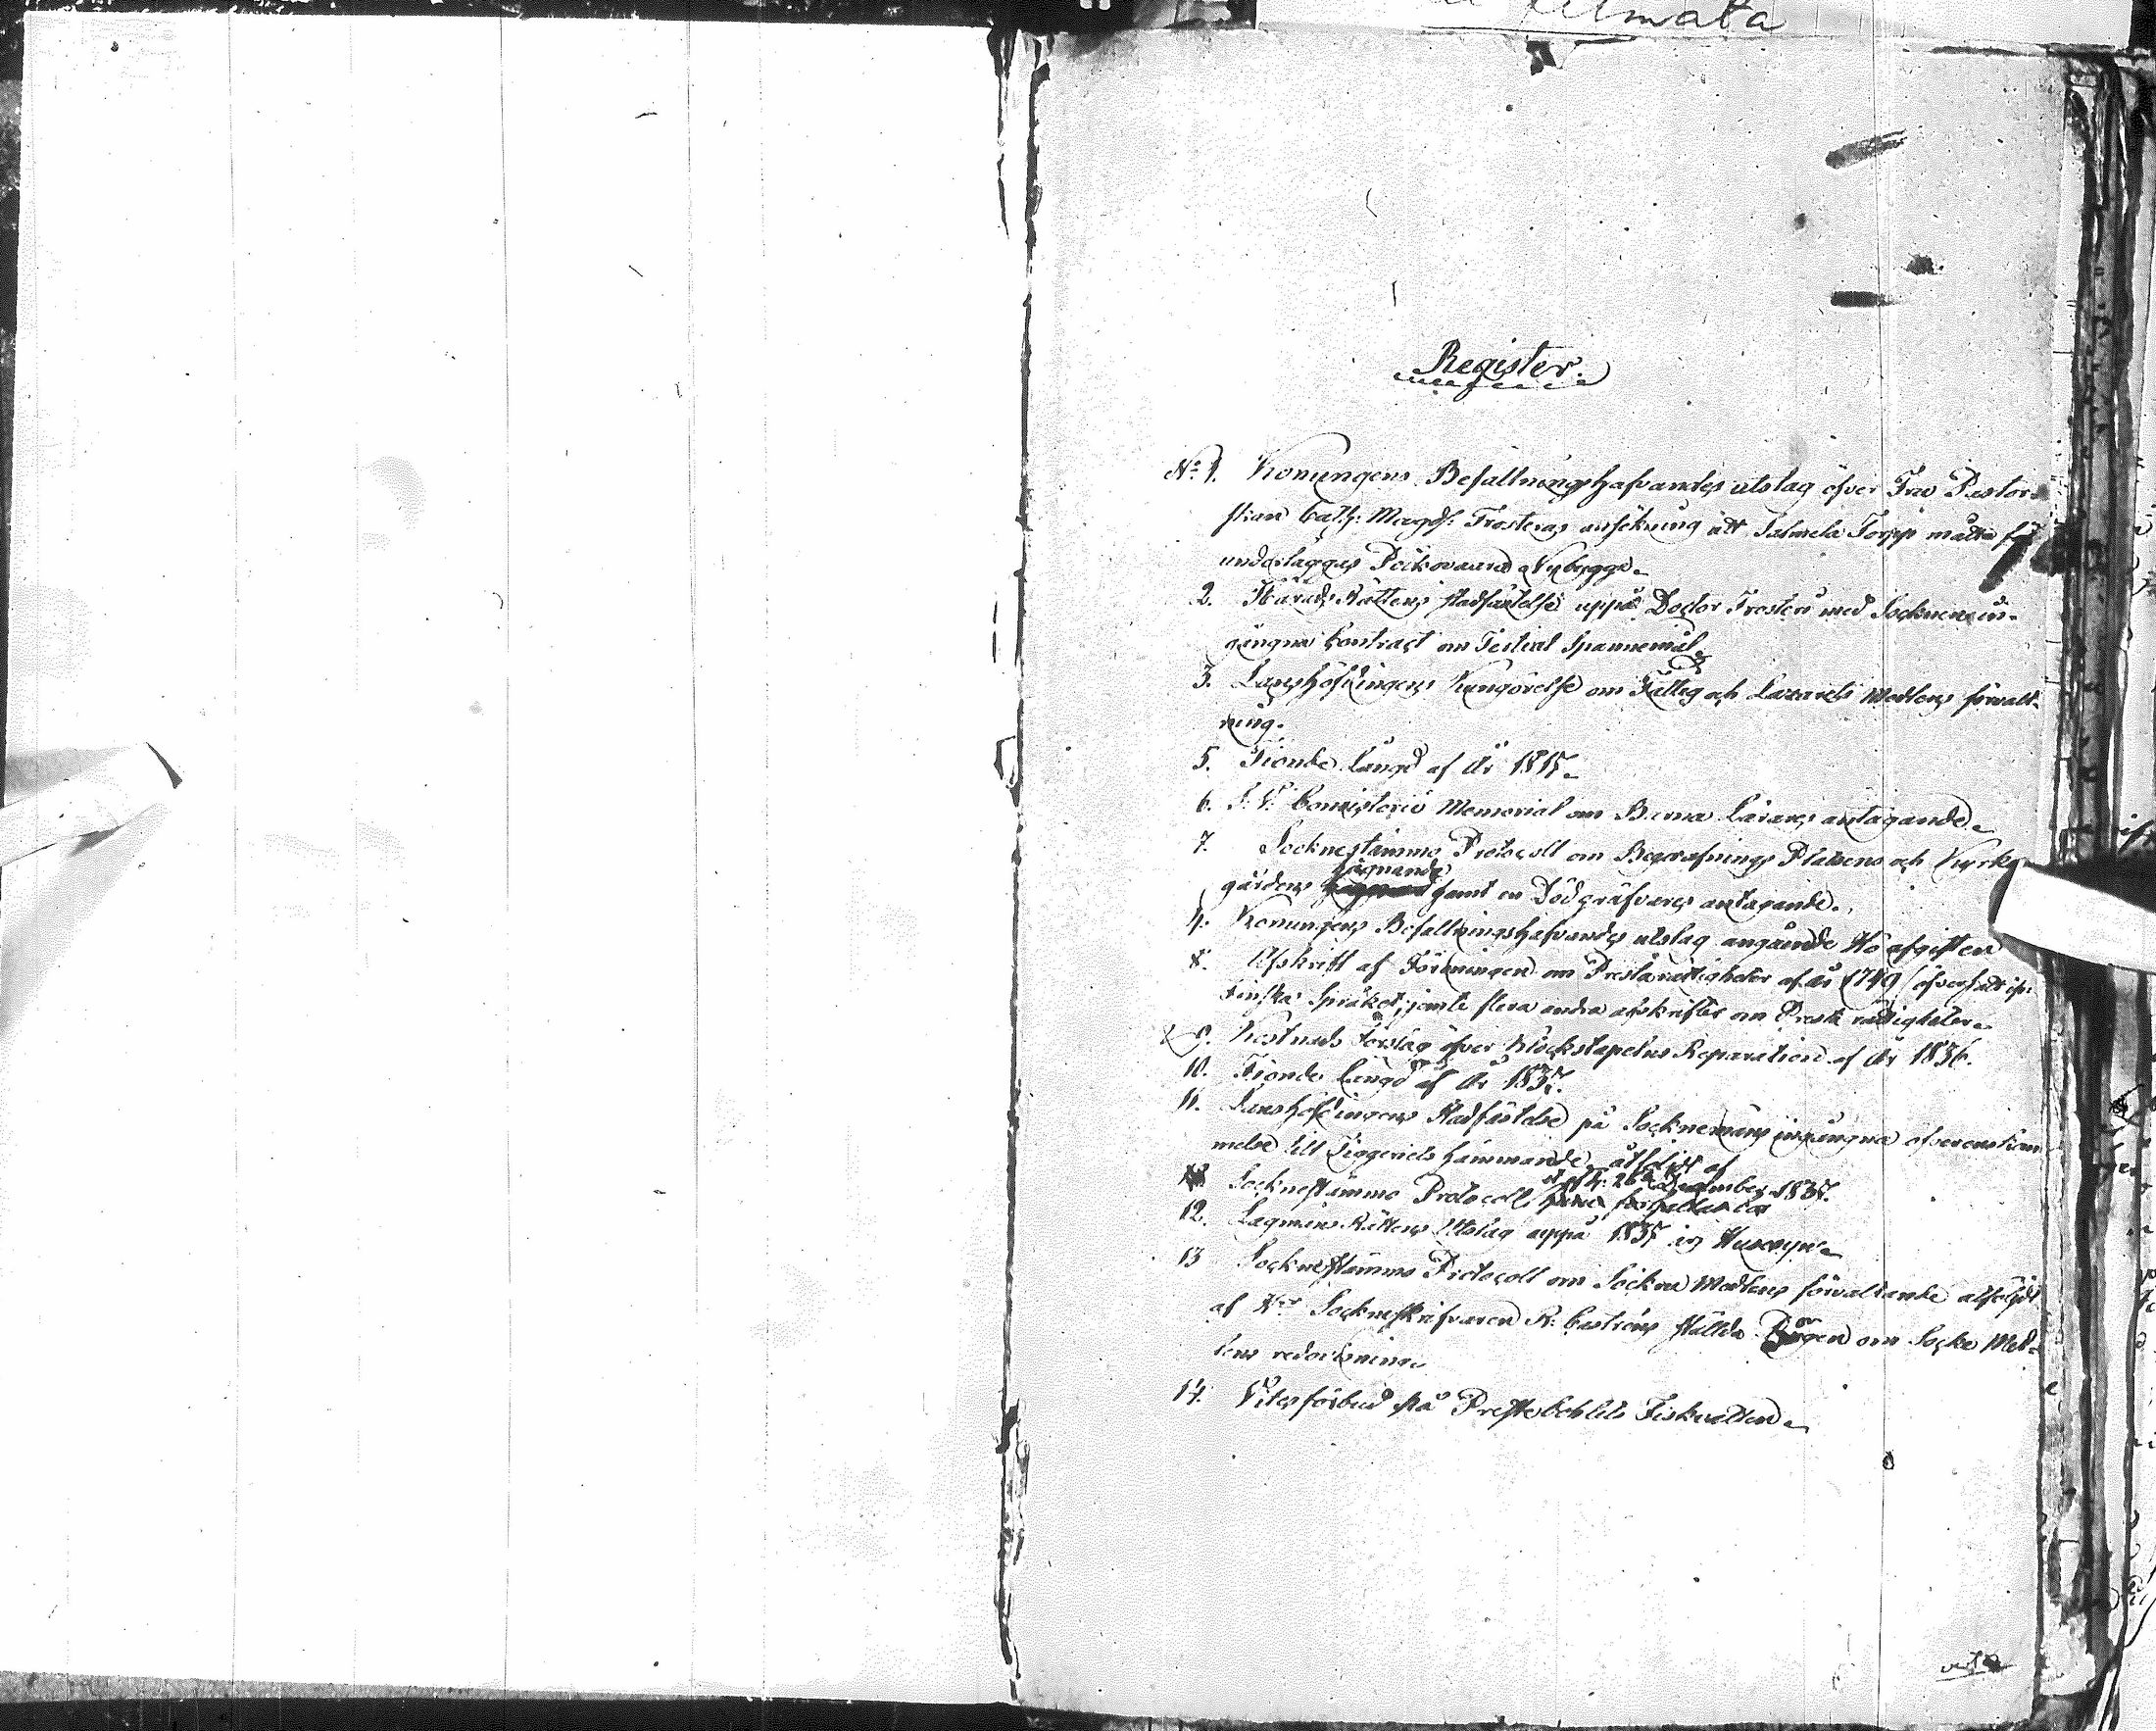 filmata
Register.
No 1. Konungens Befallningshafvandes utslag öfver Fru Pastor-
skan Cath: Magd: Frosterus ansökning att Salmela Torpp måtte få
underläggas Nybygge.
2. Härads Rättens stadfästelse uppå Doctor Frosterus med Socknen in-
gångna Contract om Testial Spannemål.
3. Landshöfdingens Kungörelse om Fattig och Lazarets Medlens förvalt-
ning.
5. Tionde Längd af År 1815.
6. S: V: Consistorii Memorial om Barna Lärares antagande.
7. Socknestämmo Protocoll om Begrafnings Platsens och Kyrko
gårdens hägnande samt en Dödgräfvares antagande.
4. Konungens Befallningshafvandes utslag angående Hö afgiften
8. Afskrift af Föreningen om Prästerättigheter af år 1749 / öfversatt på
Finska Språket, jemte flera andra afskrifter om Prästerättigheter.
9. Kostnads Förslag öfver Klockstapelns Reparation af År 1836.
10. Tionde Längd af År 1837.
11. Landshöfdingens Stadfästelse på Socknemäns ingångna öfverenskom
melse till Tiggeriets hämmande, åtföljdt af
Socknestämmo Protocoll d. 26 December 1837.
12. Lagmans Rättens Utslag uppå 1835 års Husesyn.
13 Sockne Stämmo Protocoll om Sockne Medlens förvaltande åtföljdt
af Hr Socknesskrifvaren K: Castréns ställda Borgen om Socke Med-
lens redovisning.
14. Vitesförbud på Prestebohlets Fiskvatten.